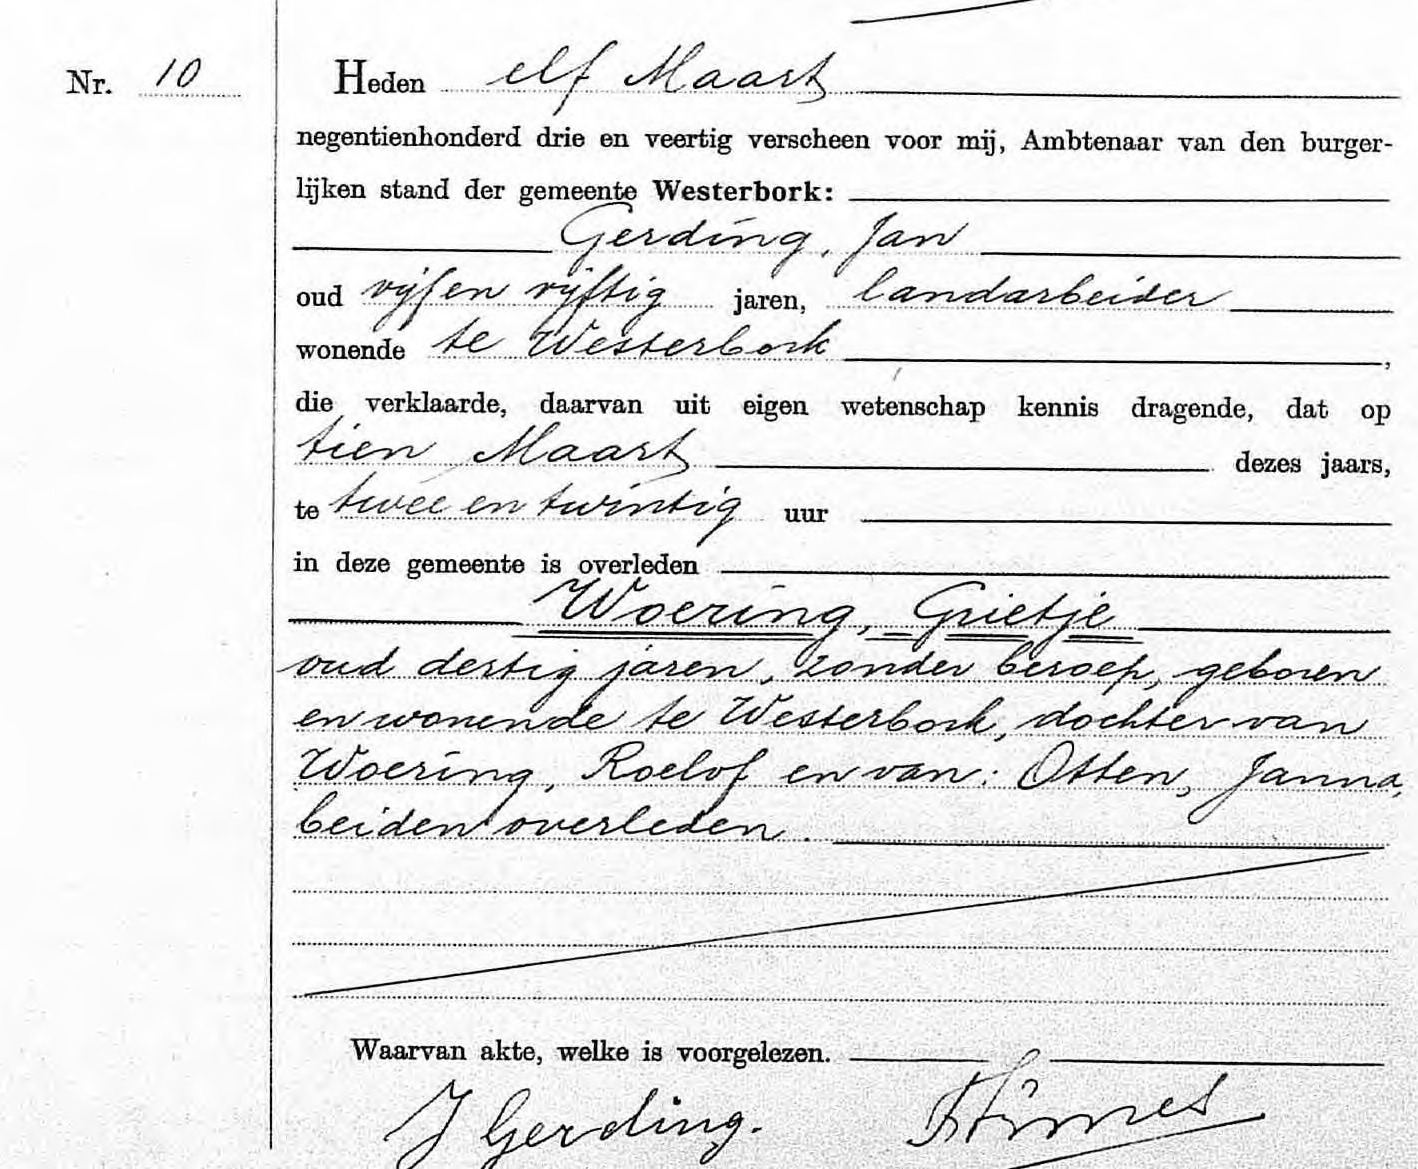 Nr. 10
Heden elf Maart
negentienhonderd drie en veertig verscheen voor mij, Ambtenaar van den burger-
lijken stand der gemeente Westerbork:
Gerding, Jan
oud vijf en vijftig jaren, landarbeider
wonende te Westerbork,
die verklaarde, daarvan uit eigen wetenschap kennis dragende, dat op
tien Maart dezes jaars,
te twee en twintig uur
in deze gemeente is overleden
Woering, Grietje
oud dertig jaren, zonder beroep, geboren
en wonende te Westerbork, dochter van
Woering, Roelof en van: Otten, Janna,
beiden overleden.
Waarvan akte, welke is voorgelezen.
J Gerding.